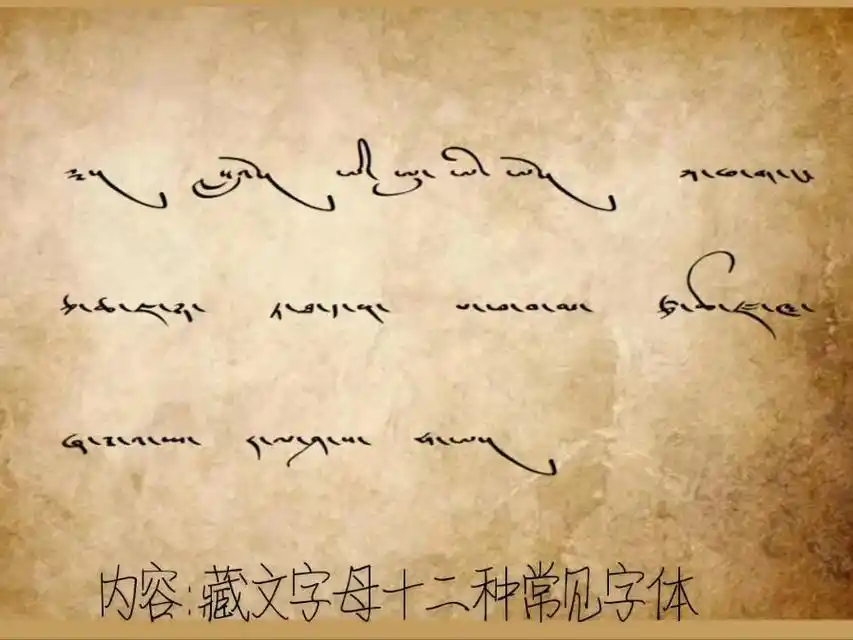 ཨི་ཨུ་ཨེ་ཨོ། ཀ་ཁ་ག་ང་
ཅ་ཆ་ཇ་ཉ་ ཏ་ཐ་ད་ན་ པ་ཕ་བ་མ་ ཙ་ཚ་ཛ་ཝ་
ཞ་ཟ་འ་ཡ་ ར་ལ་ཤ་ས་ ཧ་ཨ།
内容:藏文字母十二种常见字体